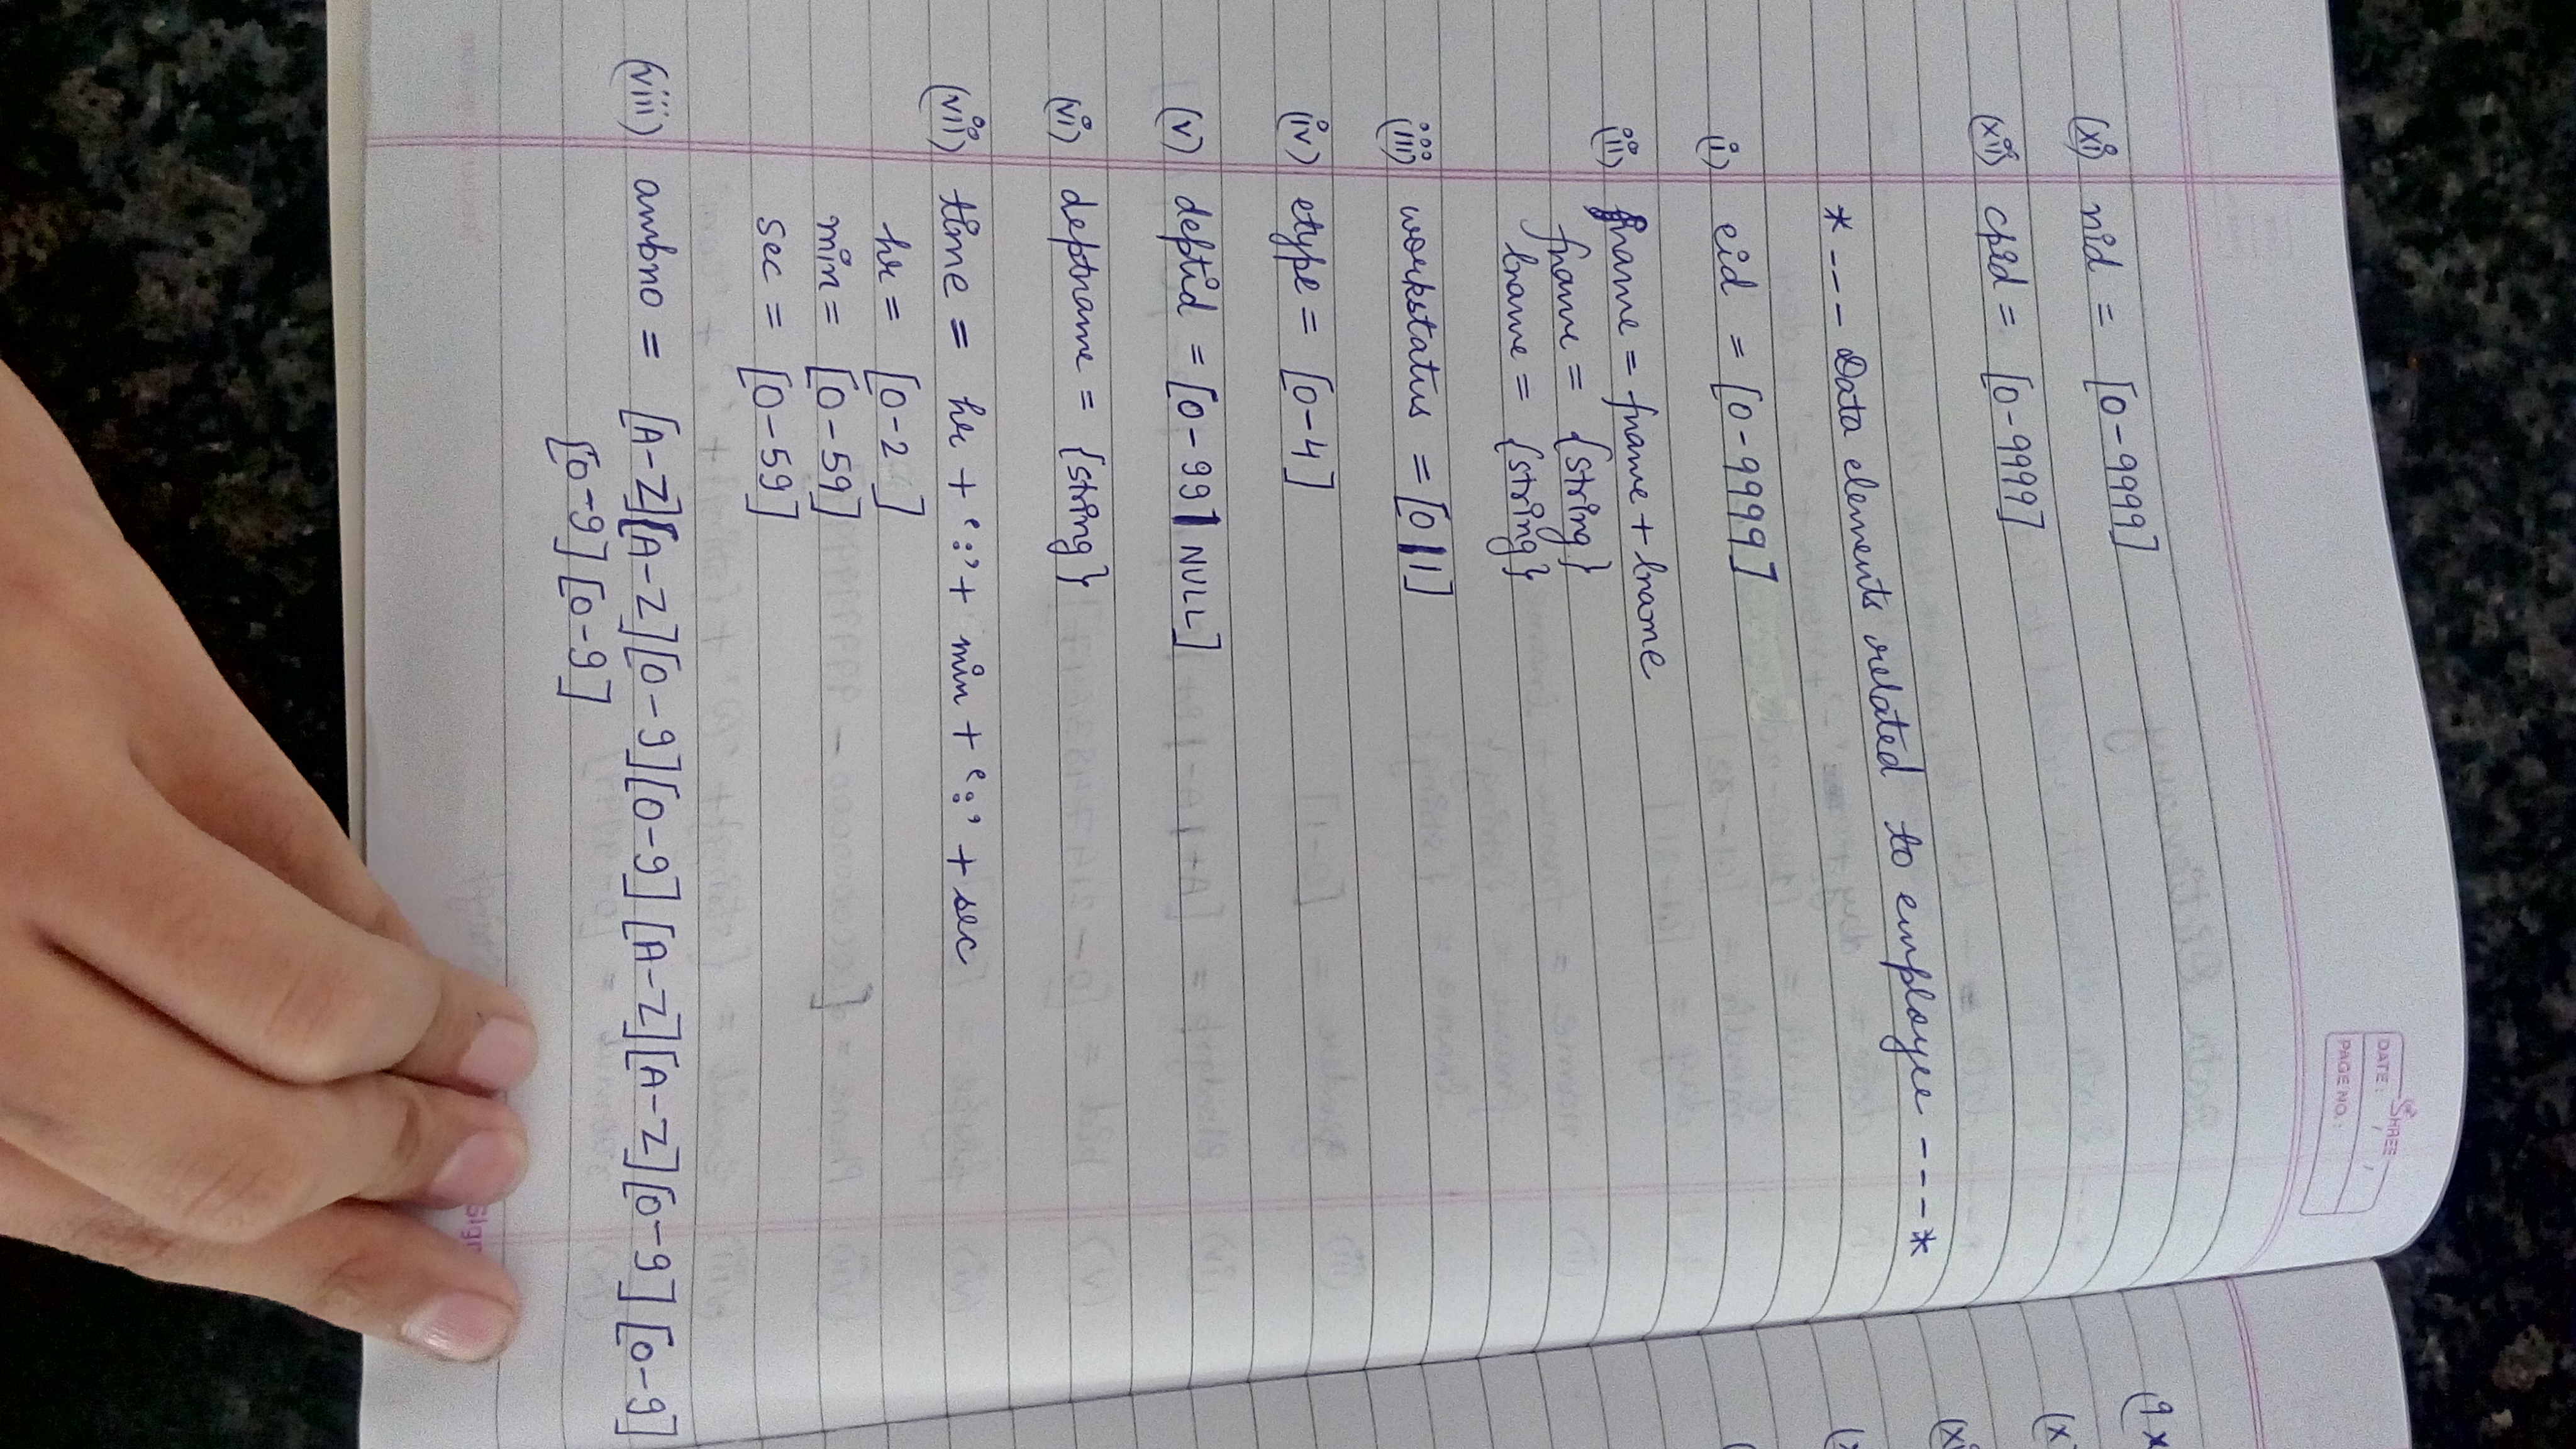 SHREE
DATE: / /
PAGE NO.:
(xi) nid = [0-9999]
(xii) cpid = [0-9999]
*--- Data elements related to employee ---*
(i) eid = [0-9999]
(ii) name = fname + lname
fname = {string}
lname = {string}
(iii) workstatus = [0|1]
(iv) etype = [0-4]
(v) deptid = [0-99| NULL]
(vi) deptname = {string}
(vii) time = hr + ':' + min + ':' + sec
hr = [0-2 ]
min = [0-59]
sec = [0-59]
(viii) ambno = [A-Z][A-Z][0-9][0-9][A-Z][A-Z][0-9][0-9]
[0-9][0-9]